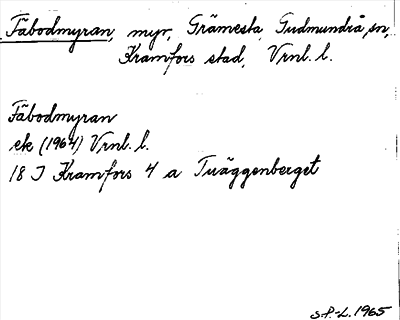 Fäbodmyran, myr, Grämesta, Gudmundrå sn,
Kramfors stad, Vrnl. l.
Fäbodmyran
ek (1964) Vrnl. l.
18 J Kramfors 4 a Tväggenberget
S.P.-L. 1965